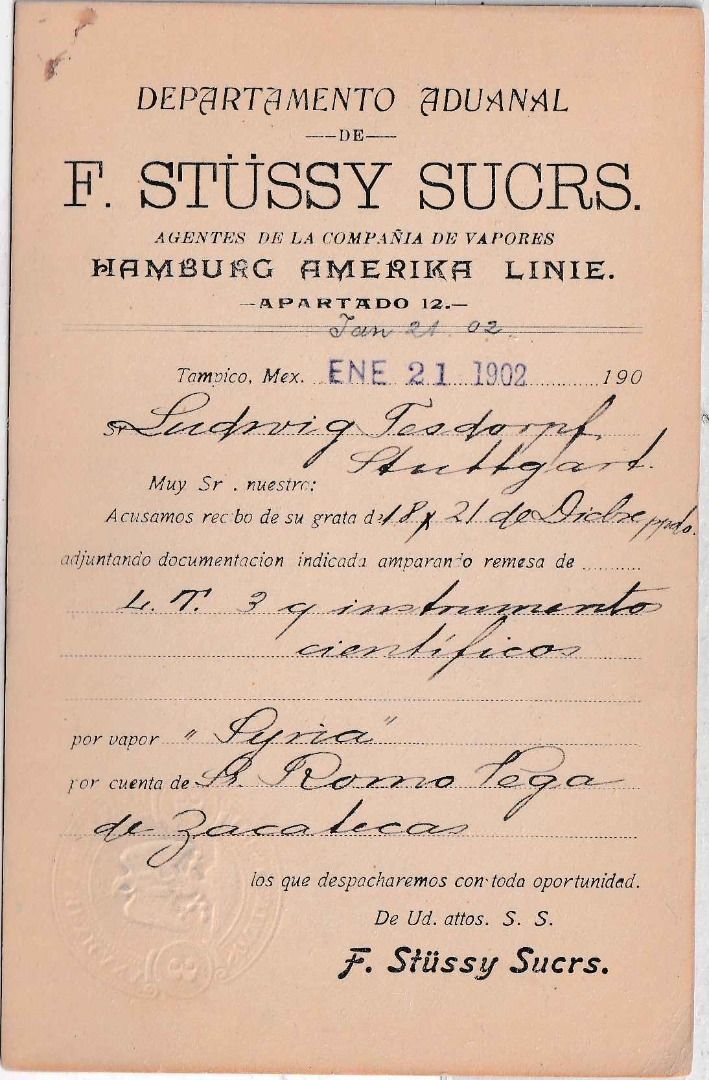 DEPARTAMENTO ADUANAL
—DE—
F. STÜSSY SUCRS.
AGENTES DE LA COMPAÑIA DE VAPORES
HAMBURG AMERIKA LINIE.
—APARTADO 12.—
Jan 21 02
Tampico, Mex. ENE 21 1902 190
Sr Ludwig Tesdorpf
Stuttgart.
Muy Sr. nuestro:
Acusamos recibo de su grata de 18 y 21 de Dicbre ppdo.
adjuntando documentacion indicada amparando remesa de
L. T. 3 c/ instrumentos
científicos
por vapor "Syria"
por cuenta de Sr. Romo Vega
de Zacatecas
los que despacharemos con toda oportunidad.
De Ud. attos. S. S.
F. Stüssy Sucrs.